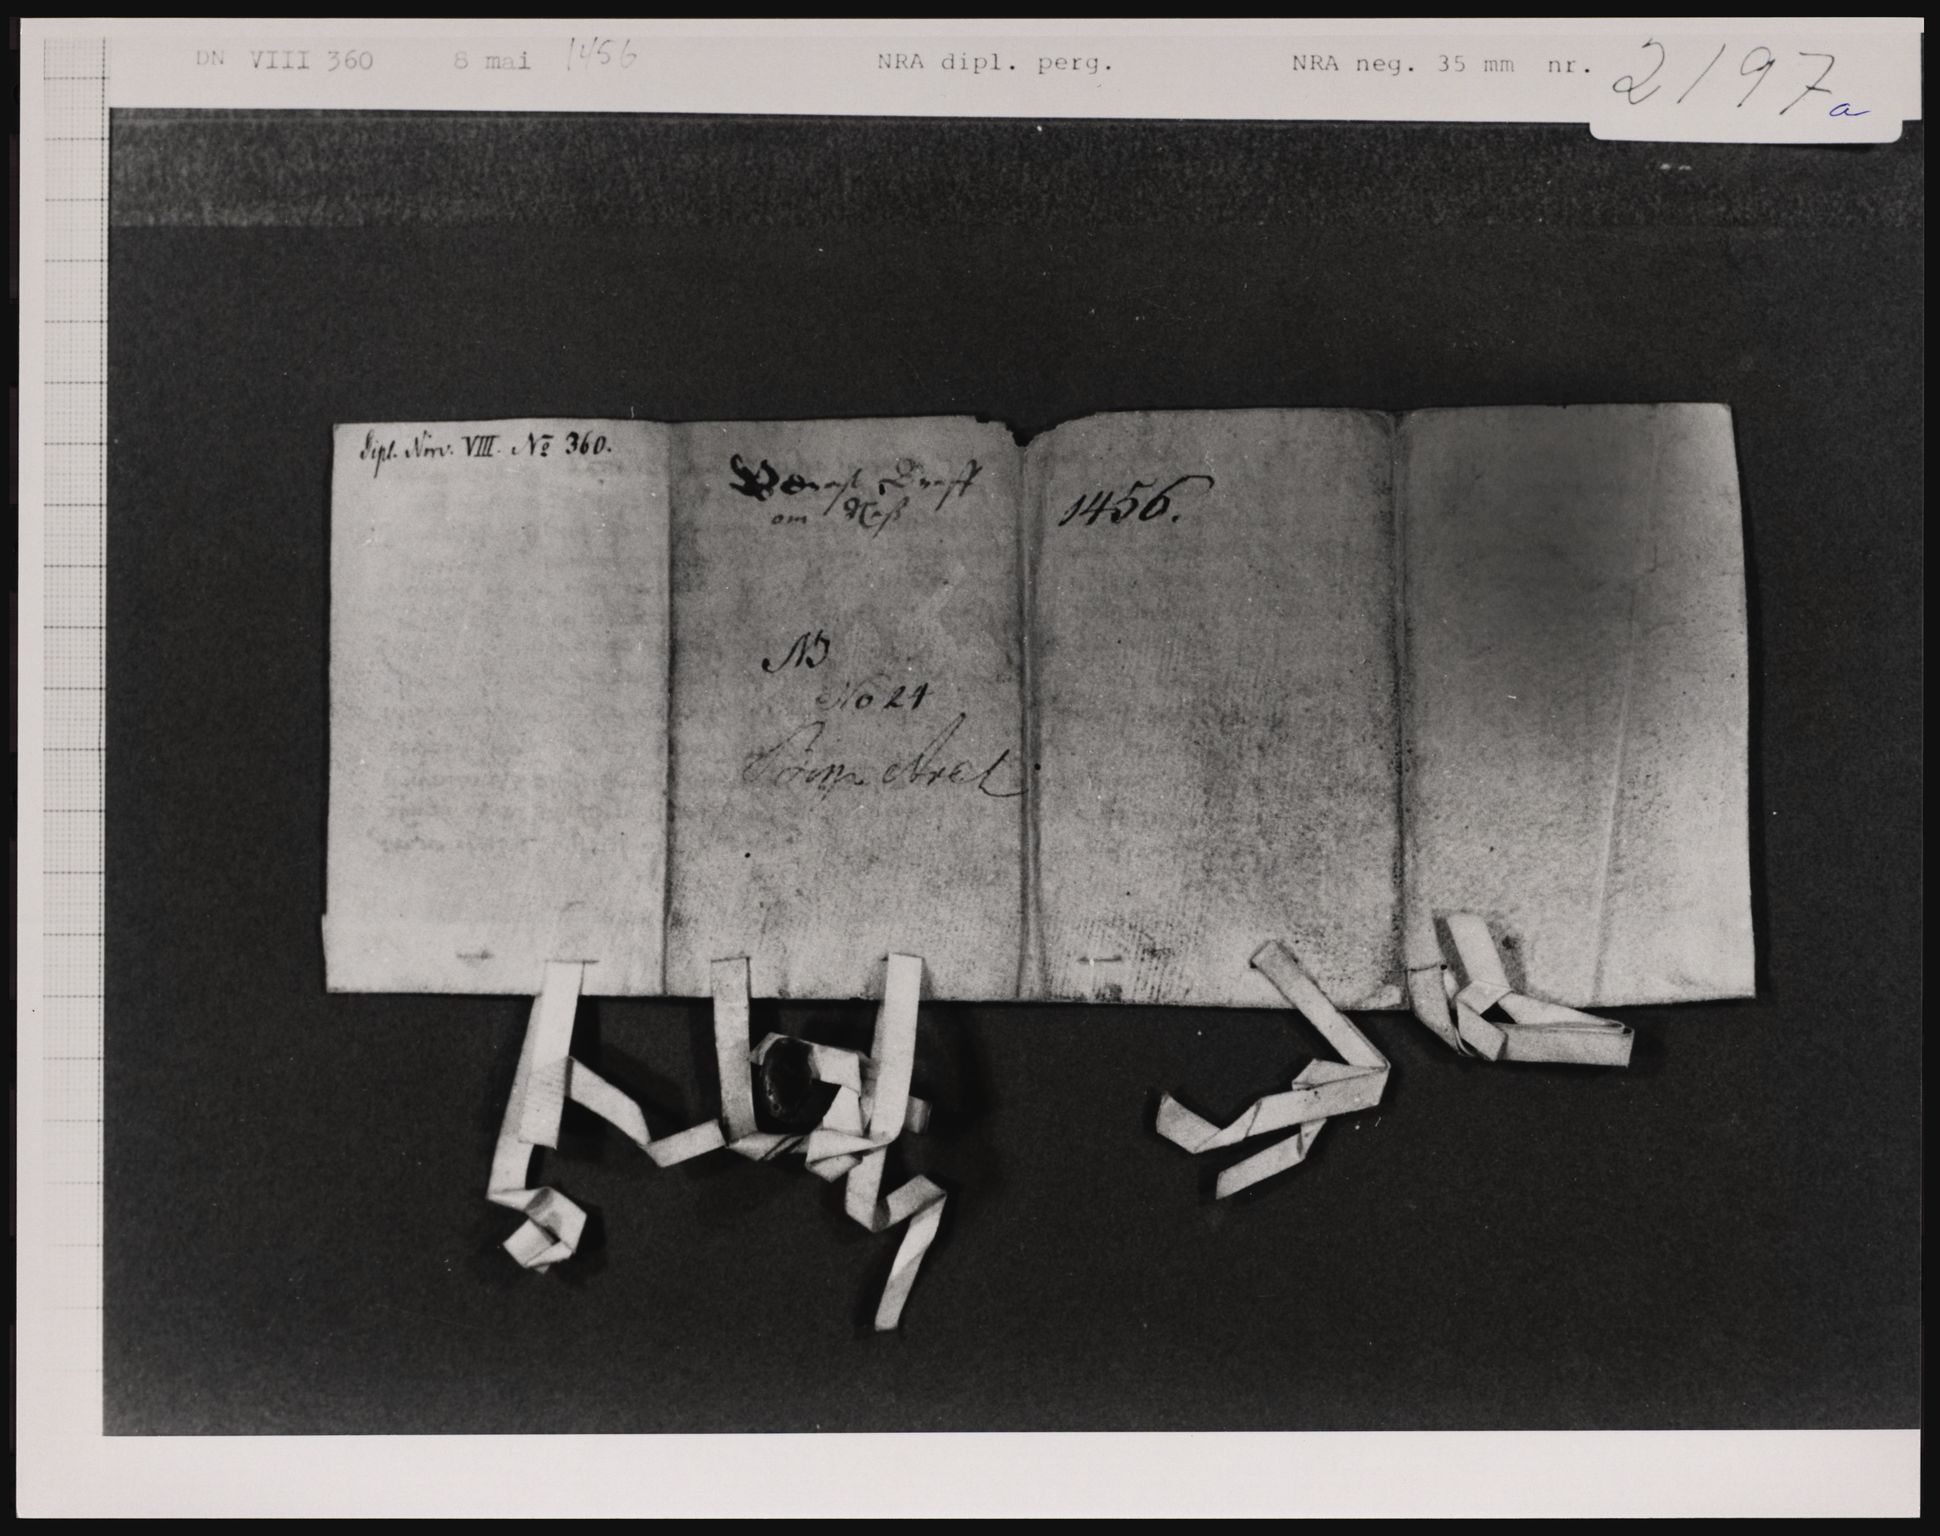 DN VIII 360 8 mai 1456 NRA dipl. perg. NRA neg. 35 mm nr. 2197a
Dipl. Norv. VIII. No 360.
Breff
om Neß
1456.
NB
No 24